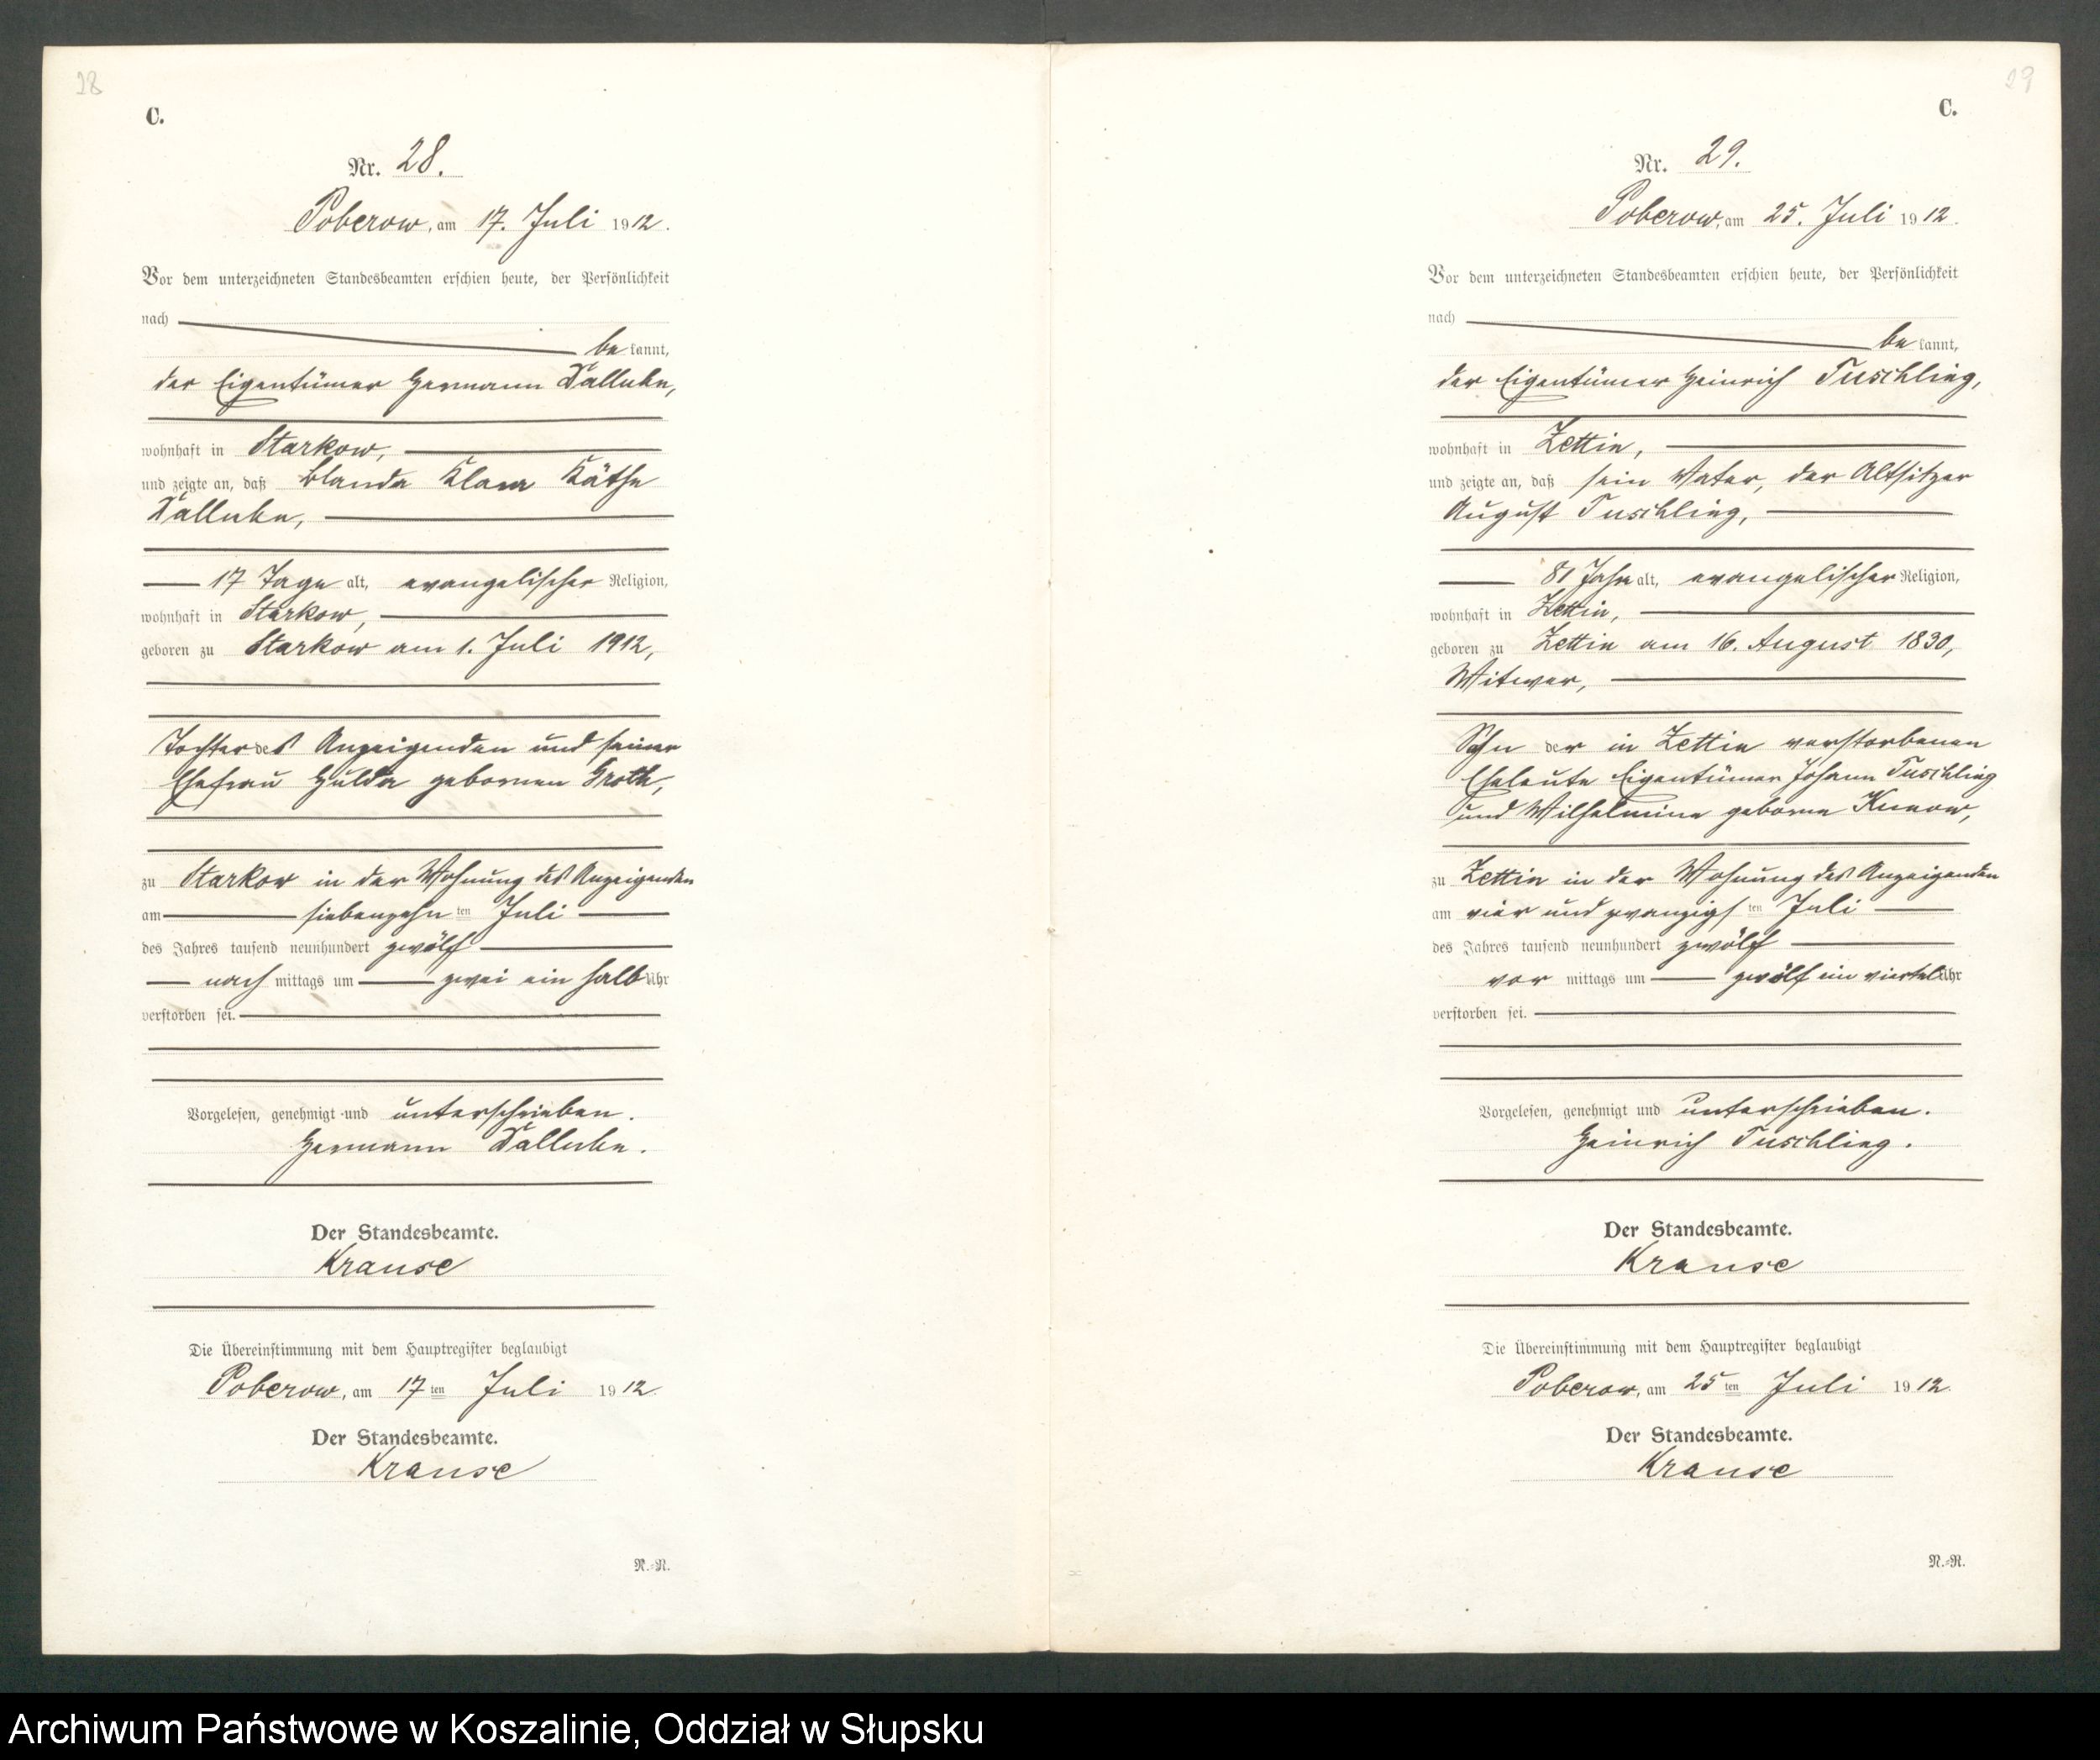 28
C.
Nr. 28.
Poberow, am 17. Juli 1912.
Vor dem unterzeichneten Standesbeamten erschien heute, der Persönlichkeit
nach
be kannt,
der Eigentümer Hermann
wohnhaft in Starkow,
und zeigte an, daß Wanda Klara Käthe
17 Tage alt, evangelischer Religion,
wohnhaft in Starkow,
geboren zu Starkow am 1. Juli 1912,
Tochter des Anzeigenden und seiner
Ehefrau Hulda gebornen Groth,
zu Starkow in der Wohnung des Anzeigenden
am siebenzehn ten Juli
des Jahres tausend neunhundert zwölf
nach mittags um zwei ein halb Uhr
verstorben sei.
Vorgelesen, genehmigt und unterschrieben.
Hermann
Der Standesbeamte.
Krause
Die Übereinstimmung mit dem Hauptregister beglaubigt
Poberow, am 17 ten Juli 1912
Der Standesbeamte.
Krause
N.=R.
29
C.
Nr. 29.
Poberow, am 25. Juli 1912.
Vor dem unterzeichneten Standesbeamten erschien heute, der Persönlichkeit
nach
be kannt,
der Eigentümer Heinrich Tuschling,
wohnhaft in Zettin,
und zeigte an, daß sein Vater, der Altsitzer
August Tuschling,
81 Jahre alt, evangelischer Religion,
wohnhaft in Zettin,
geboren zu Zettin am 16. August 1830,
Witwer,
Sohn der in Zettin verstorbenen
Eheleute Eigentümer Johann Tuschling
und Wilhelmine geborne
zu Zettin in der Wohnung des Anzeigenden
am vier und zwanzigs ten Juli
des Jahres tausend neunhundert zwölf
vor mittags um zwölf ein viertel Uhr
verstorben sei.
Vorgelesen, genehmigt und unterschrieben.
Heinrich Tuschling.
Der Standesbeamte.
Krause
Die Übereinstimmung mit dem Hauptregister beglaubigt
Poberow, am 25 ten Juli 1912.
Der Standesbeamte.
Krause
N.=R.
Archiwum Państwowe w Koszalinie, Oddział w Słupsku